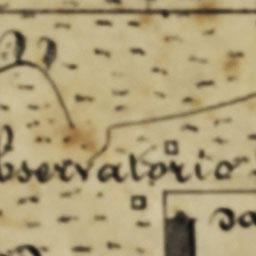 bservatorio
da